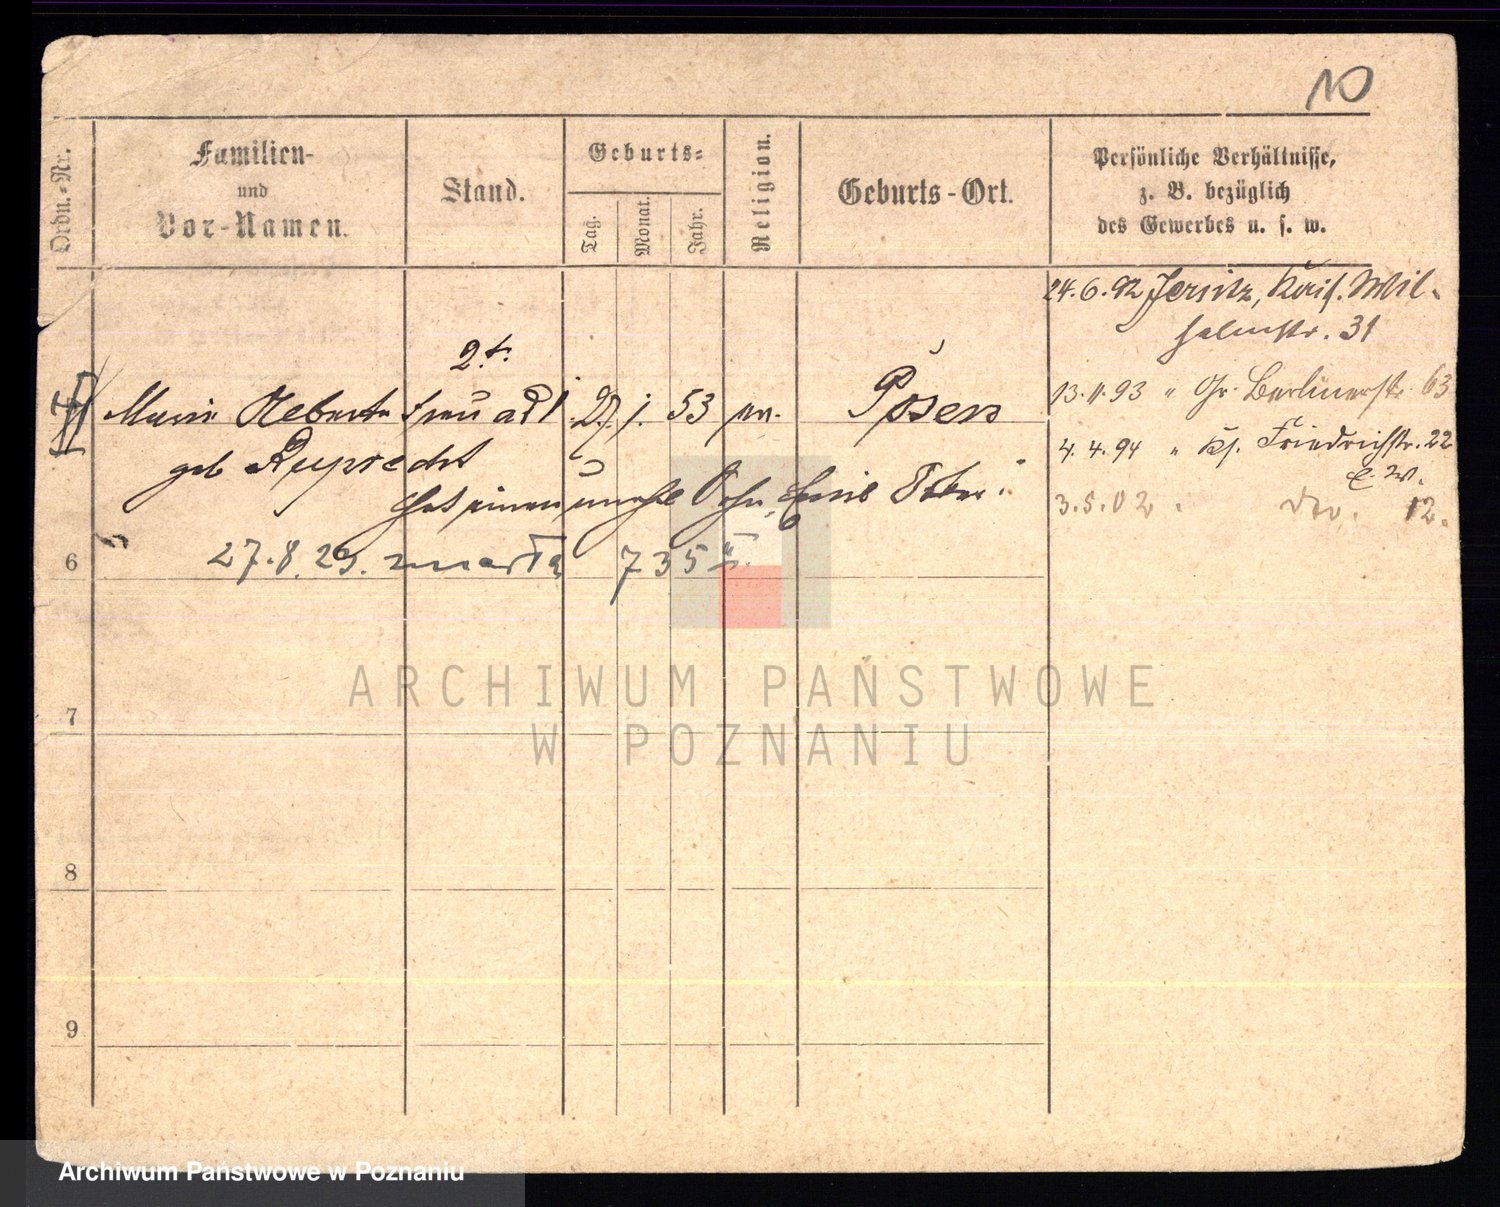 10
Ordn.-Nr.
Familien-
und
Vor-Namen.
Stand.
Geburts-
Tag.
Monat.
Jahr.
Religion.
Geburts-Ort.
Persönliche Verhältnisse,
z. B. bezüglich
des Gewerbes u. s. w.
24.6.92 Jersitz, Kais. Wil-
helmstr. 31
2t.
II Marie Frau 53 Posen
geb Ruprecht
hat einen unehel Sohn,
13.11.93 " Gr. Berlinerstr. 63
4.4.94 " Kl. Friedrichstr. 22
3.5.02 " 12.
6 27.8.29. zmarła 735
7
8
9
ARCHIWUM PAŃSTWOWE
W POZNANIU
Archiwum Państwowe w Poznaniu